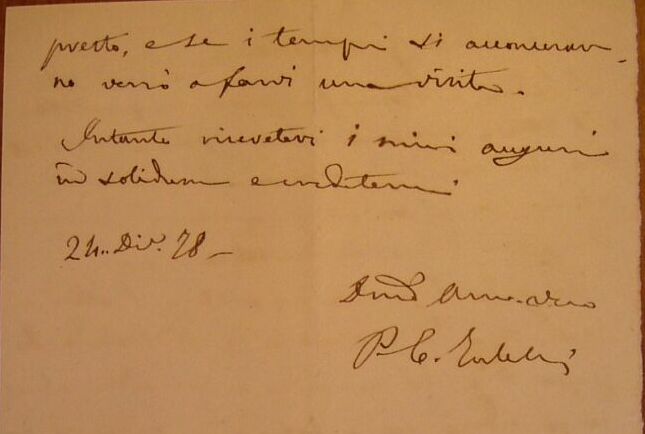 presto, e se i tempi si accomeran-
no verrò a farvi una visita.
Intanto ricevetevi i miei auguri
in solidum e credetemi
24.. Dic. 78 –
P. C.